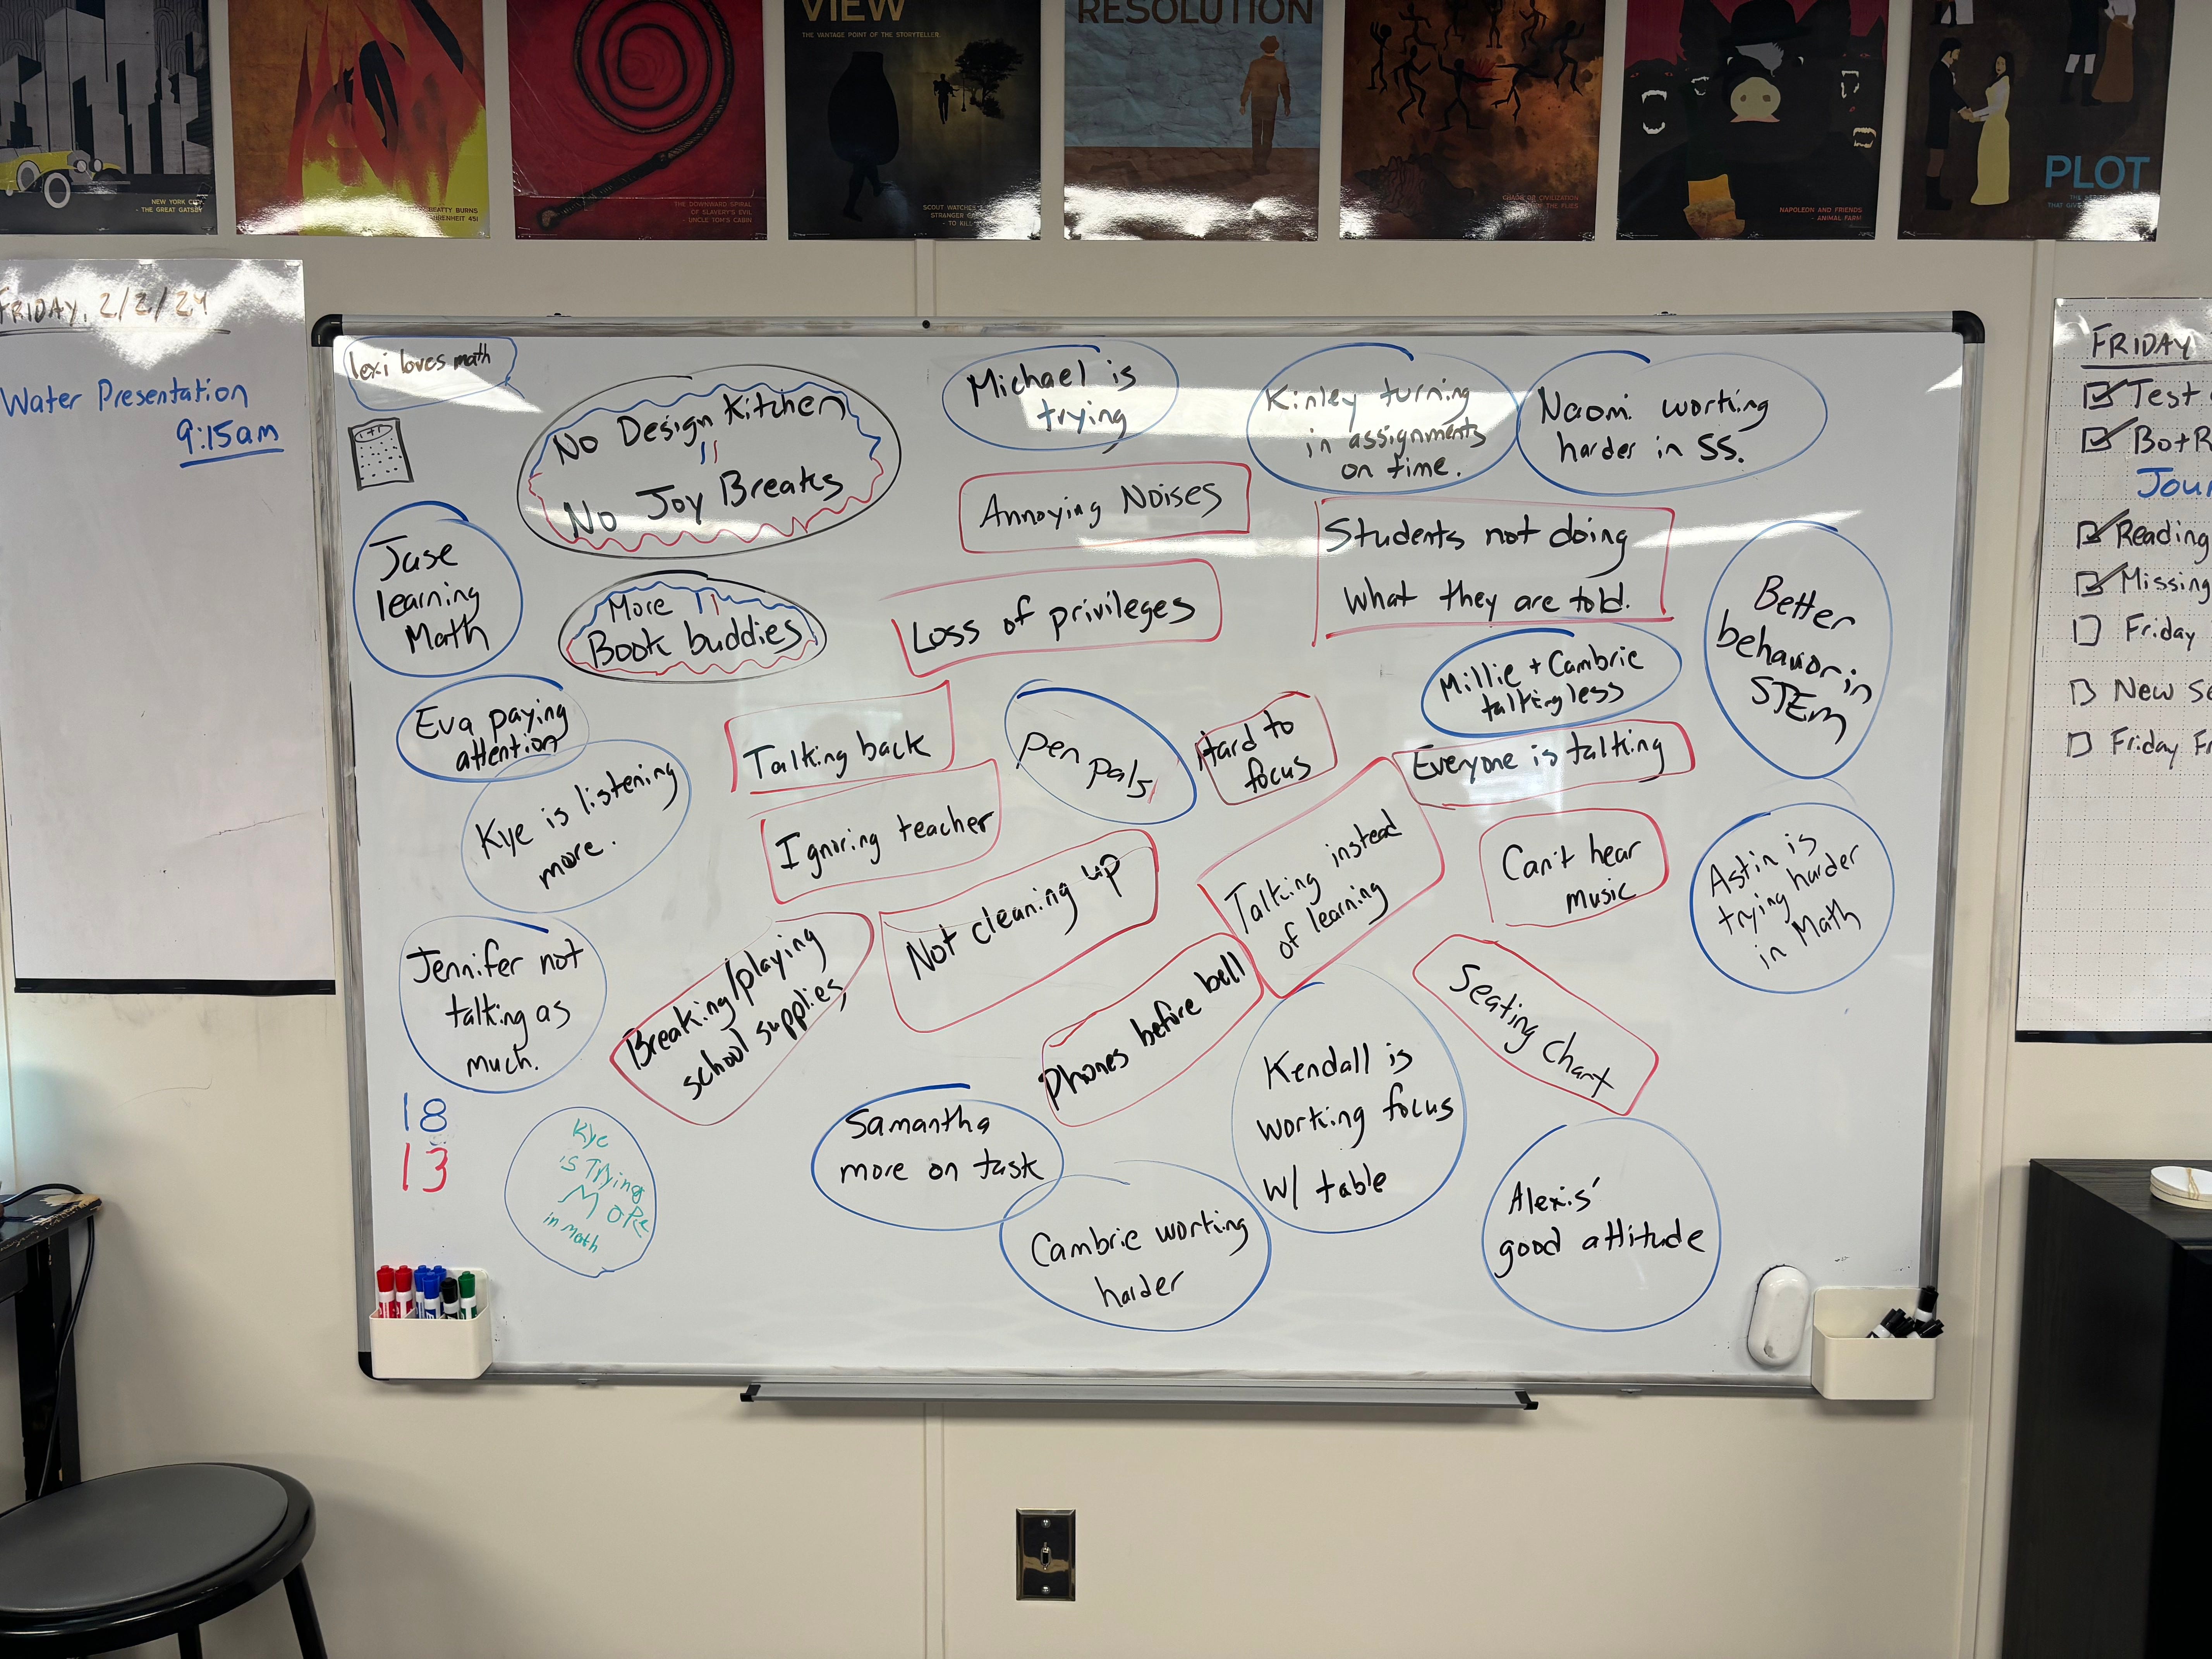 VIEW
THE VANTAGE POINT OF THE STORYTELLER.
RESOLUTION
NEW YORK CITY
- THE GREAT GATSBY
BEATTY BURNS
451
THE DOWNWARD SPIRAL
OF SLAVERY'S EVIL
- UNCLE TOM'S CABIN
SCOUT WATCHES
STRANGER
- TO KILL
CHAOS OR CIVILIZATION
OF THE FLIES
NAPOLEON AND FRIENDS
- ANIMAL FARM
PLOT
FRIDAY, 2/2/24
Water Presentation
9:15am
lexi loves math
No Design Kitchen
No Joy Breaks
Michael is
trying
Kinley turning
in assignments
on time.
Naomi working
harder in SS.
Annoying Noises
Students not doing
what they are told.
Jase
learning
Math
More
Book buddies
Loss of privileges
Better
behavior in
STEM
Millie + Cambrie
talking less
Eva paying
attention
Talking back
Pen Pals
Hard to
focus
Everyone is talking
Kye is listening
more.
Ignoring teacher
Not cleaning up
Talking instead
of learning
Can't hear
music
Astin is
trying harder
in Math
Jennifer not
talking as
much.
Breaking/playing
school supplies
Phones before bell
Seating chart
Kendall is
working focus
w/ table
18
13
Kye
is Trying
MORE
in math
Samantha
more on task
Cambrie working
harder
Alexis'
good attitude
FRIDAY
Test
Bot R
Jour
Reading
Missing
Friday
New Se
Friday Fr